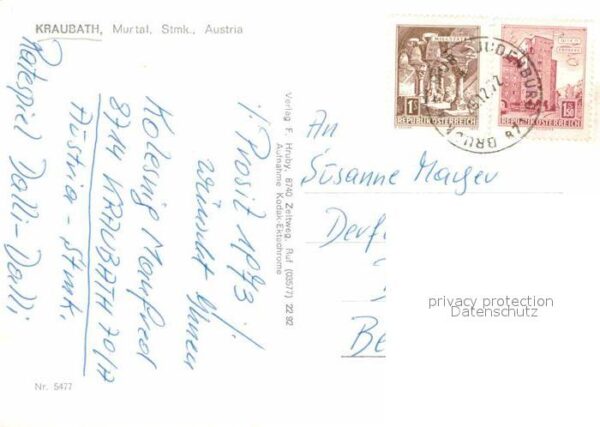 KRAUBATH, Murtal, Stmk., Austria
! Prosit 1973 !
wünscht Ihnen
Kolesnig Manfred
8714 KRAUBATH 70/17
Austria - Stmk.
Ratespiel Dalli-Dalli
Nr. 5477
Verlag F. Hruby, 8740 Zeltweg, Ruf (03577) 22 92
Aufnahme Kodak-Ektachrome
1S
REPUBLIK ÖSTERREICH
S 1.50
REPUBLIK ÖSTERREICH
JUDENBURG
BRUCK
An
Susanne Mayer
Derf
Be
privacy protection
Datenschutz